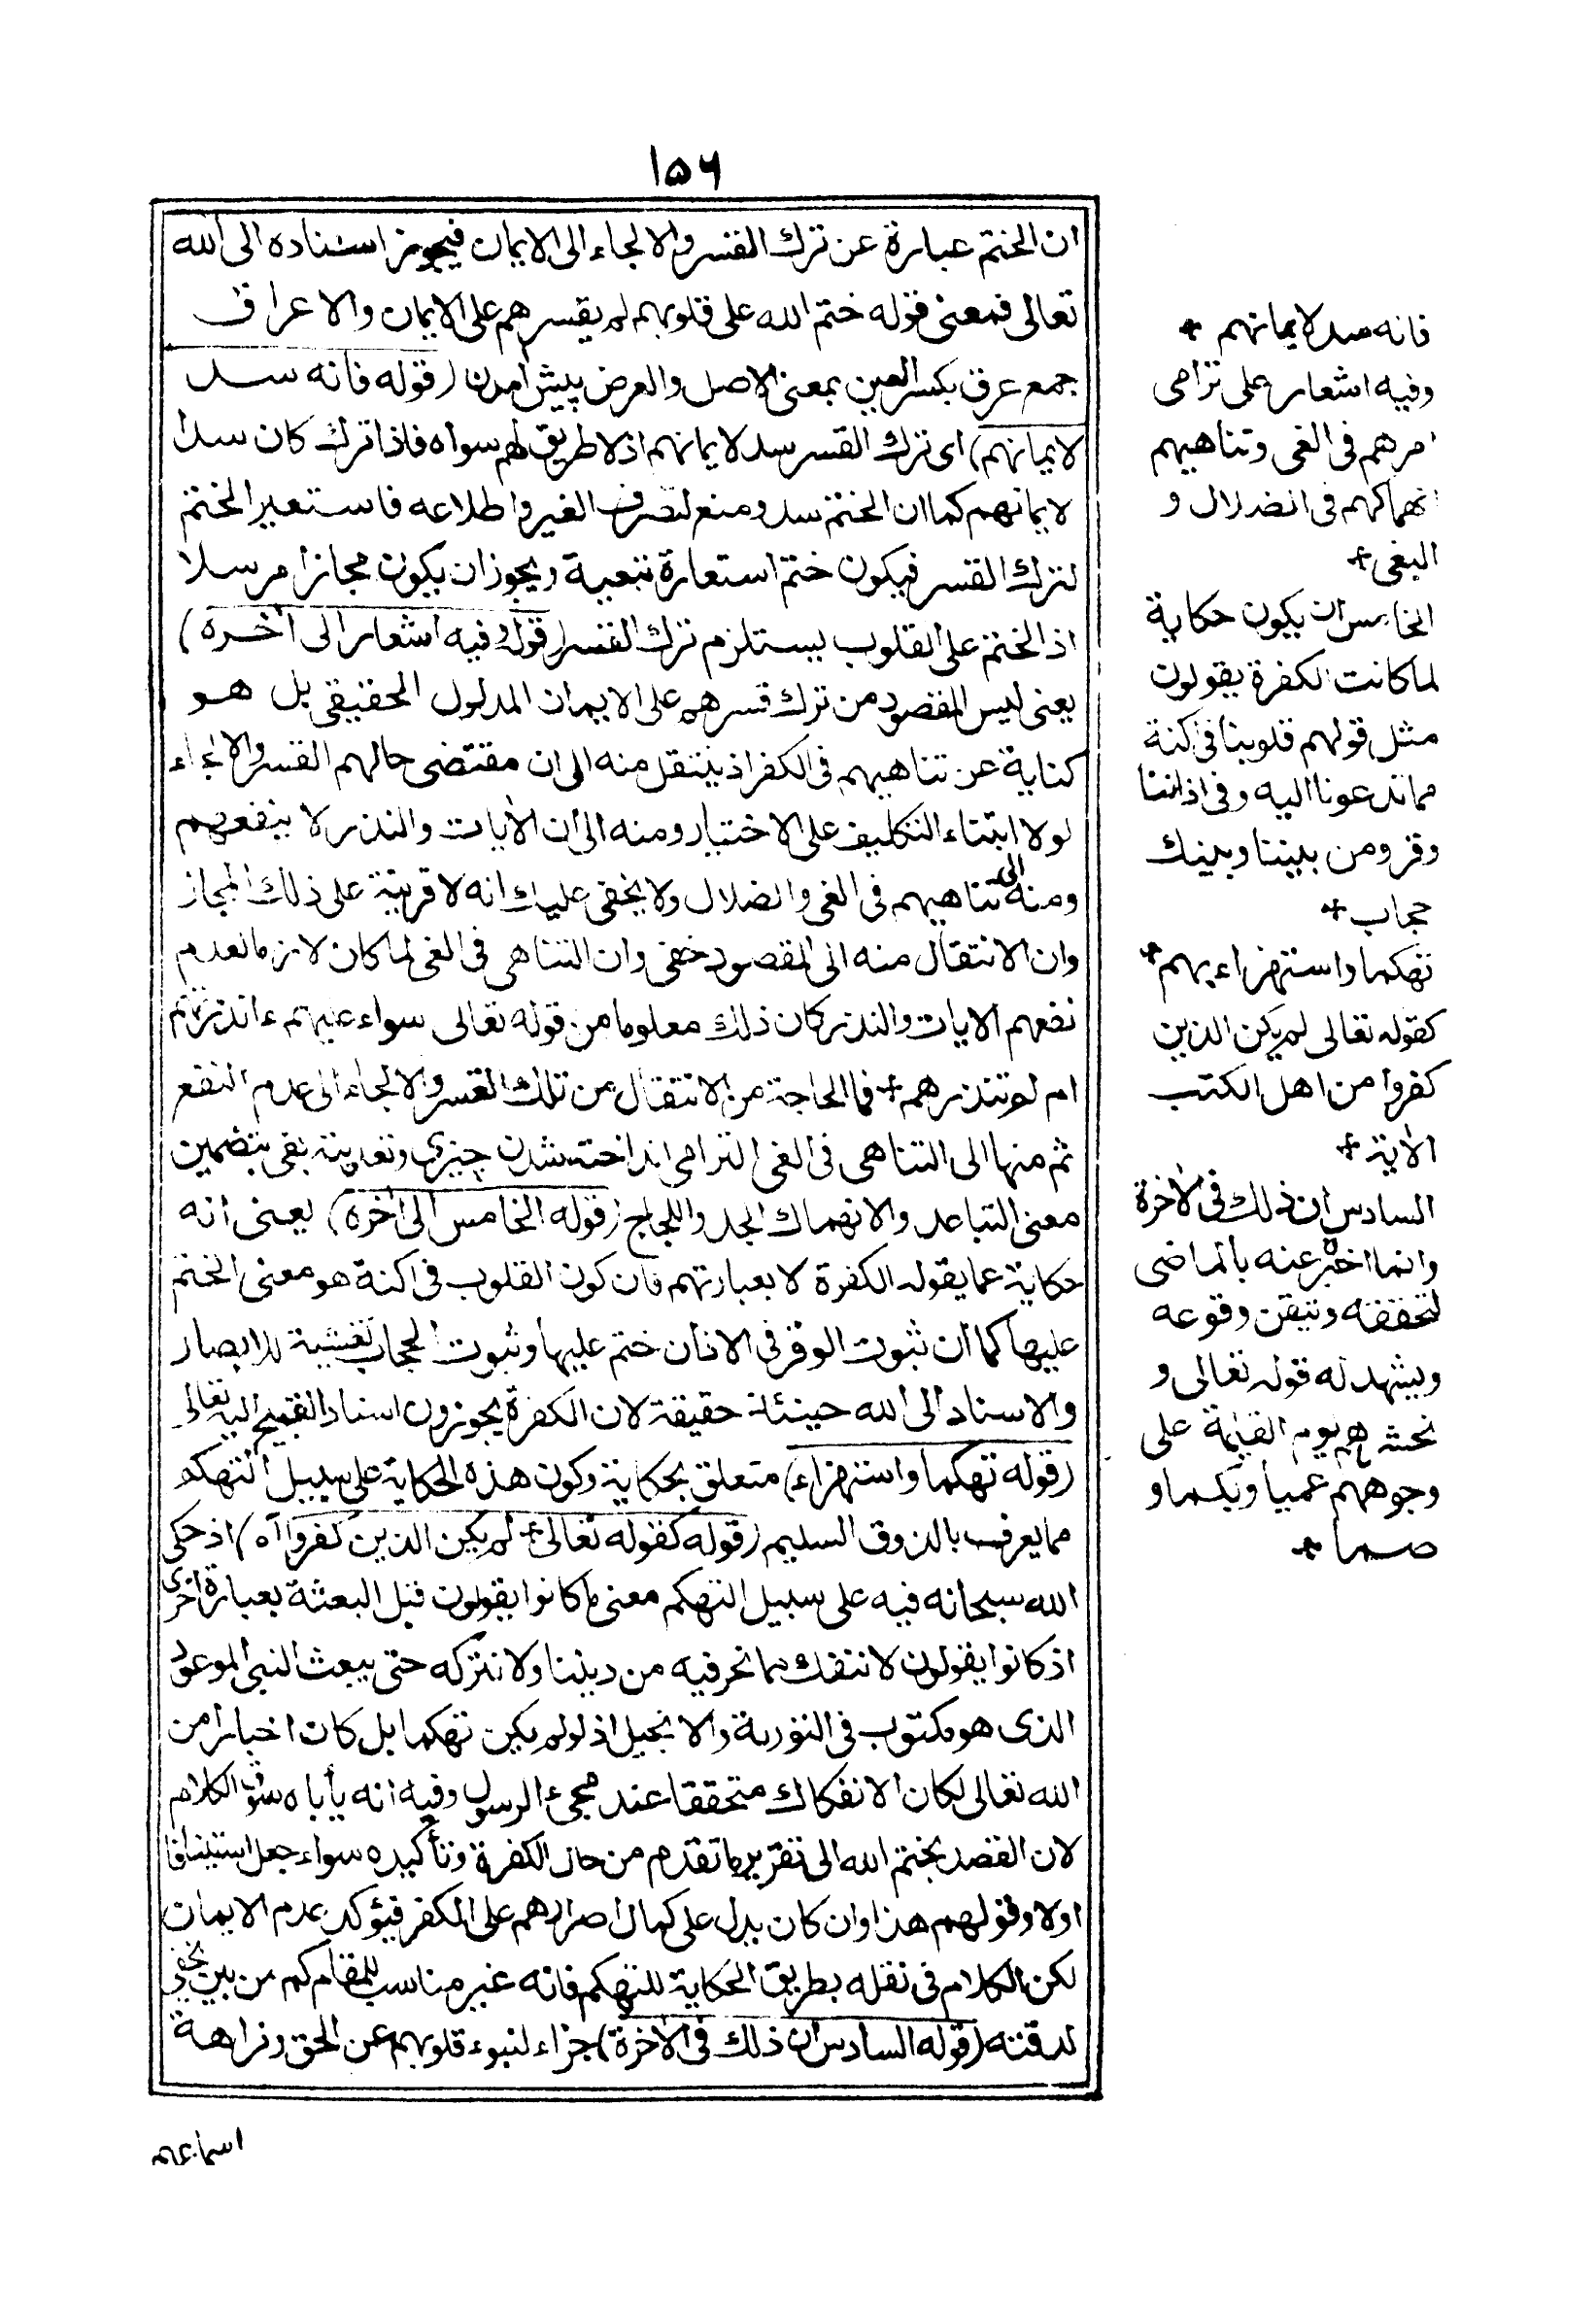 ١٥٦
ان الختم عبارة عن ترك القسر والالجاء الى الايمان فيجوز اسناده الى الله
تعالى فمعنى قوله ختم الله على قلوبهم لم يقسرهم على الايمان والاعراق
جمع عرق بكسر العين بمعنى الاصل والعرض پيش آمدن (قوله فانه سد
لايمانهم) اى ترك القسر سد لايمانهم اذ لا طريق لهم سواه فاذا ترك كان سدا
لايمانهم كما ان الختم سد ومنع لتصرف الغير واطلاعه فاستعير الختم
لترك القسر فيكون ختم استعارة تبعية ويجوز ان يكون مجازا مرسلا
اذ الختم على القلوب يستلزم ترك القسر (قوله وفيه اشعار الى آخره)
يعنى ليس المقصود من ترك قسرهم على الايمان المدلول الحقيقى بل هو
كناية عن تناهيهم فى الكفر اذ ينتقل منه الى ان مقتضى حالهم القسر والالجاء
لولا ابتناء التكليف على الاختيار ومنه الى ان الآيات والنذر لا ينفعهم
ومنه الى تناهيهم فى الغى والضلال ولا يخفى عليك انه لا قرينة على ذلك المجاز
وان الانتقال منه الى المقصود خفى وان التناهى فى الغى لما كان لازما لعدم
نفعهم الايات والنذر كان ذلك معلوما من قوله تعالى سواء عليهم ءانذرتهم
ام لم تنذرهم + فما الحاجة من الانتقال من تلك القسر والالجاء الى عدم النفع
ثم منها الى التناهى فى الغى الترامى انداخته شدن چيزى وتعديته بفى بتضمين
معنى التباعد والانهماك الجد واللجاج (قوله الخامس الى آخره) يعنى انه
حكاية عما يقوله الكفرة لا بعبارتهم فان كون القلوب فى اكنة هو معنى الختم
عليها كما ان ثبوت الوقر فى الاذان ختم عليها وثبوت الحجاب تغشية للابصار
والاسناد الى الله حينئذ حقيقة لان الكفرة يجوزون اسناد القبيح اليه تعالى
(قوله تهكما واستهزاء) متعلق بحكاية وكون هذه الحكاية على سبيل التهكم
مما يعرف بالذوق السليم (قوله كقوله تعالى + لم يكن الذين كفروا آه) اذ حكى
الله سبحانه فيه على سبيل التهكم معنى ما كانوا يقولون قبل البعثة بعبارة اخرى
اذ كانوا يقولون لا ننفك مما نحن فيه من ديننا ولا نتركه حتى يبعث النبى الموعود
الذى هو مكتوب فى التورية والانجيل اذ لو لم يكن تهكما بل كان اخبارا من
الله تعالى لكان الانفكاك متحققا عند مجئ الرسول وفيه انه يأباه سوق الكلام
لان القصد بختم الله الى تقرير ما تقدم من حال الكفرة وتأكيده سواء جعل استينافا
اولا وقولهم هذا وان كان يدل على كمال اصرارهم على الكفر فيؤكد عدم الايمان
لكن الكلام فى نقله بطريق الحكاية للتهكم فانه غير مناسب للمقام كم من بين يخفى
لدقته (قوله السادس ان ذلك فى الآخرة) جزاء لنبوء قلوبهم عن الحق ونزاهة
فانه سد لايمانهم +
وفيه اشعار على ترامى
امرهم فى الغى وتناهيهم
انهماكهم فى الضلال و
البغى +
الخامس ان يكون حكاية
لما كانت الكفرة يقولون
مثل قولهم قلوبنا فى اكنة
مما تدعونا اليه وفى اذاننا
وقر ومن بيننا وبينك
حجاب +
تهكما واستهزاء بهم +
كقوله تعالى لم يكن الذين
كفروا من اهل الكتب
الآية +
السادس ان ذلك فى الآخرة
وانما اخبر عنه بالماضى
لتحققه وتيقن وقوعه
ويشهد له قوله تعالى و
نحشرهم يوم القيامة على
وجوههم عميا وبكما و
صما +
اسماعهم